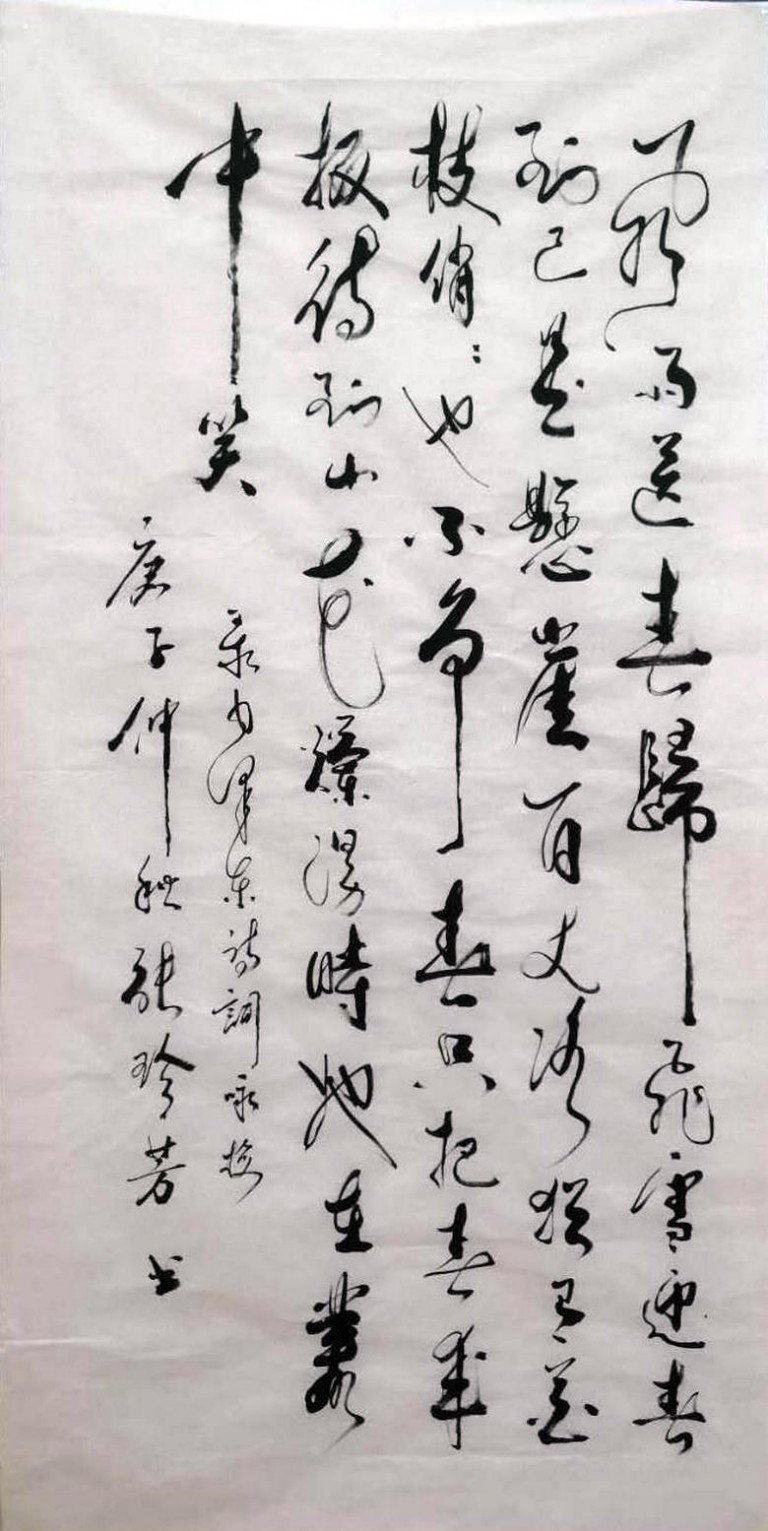 風雨送春歸飛雪迎春
到已是懸崖百丈冰猶有花
枝俏俏也不争春只把春来
报待到山花爛漫時她在叢
中笑
录毛澤東詩詞咏梅
庚子仲秋張芳书